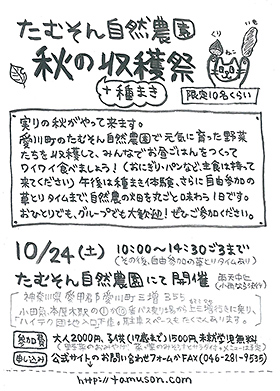 たむそん自然農園
くり
いも
ねこ
秋の収穫祭
+種まき
限定10名くらい
実りの秋がやって来ます。
愛川町のたむそん自然農園で元気に育った野菜
たちを収穫して、みんなでお昼ごはんをつくって
ワイワイ食べましょう!(おにぎり・パンなど、主食は持って
来てください)午後は種まき体験、さらに自由参加の
草とりタイムまで、自然農の畑を丸ごと味わう1日です。
おひとりでも、グループでも大歓迎!ぜひご参加ください。
10/24(土) 10:00~14:30ごろまで
(その後、自由参加の草とりタイムあり)
たむそん自然農園にて開催
雨天中止
神奈川県愛甲郡愛川町三増
小田急 本厚木駅の
バス乗り場から上三増行きに乗り、
「ハイテク団地入口」下車。駐車スペースもたくさんあります。
参加費 大人2000円、子供(17歳まで)1500円、未就学児無料
申し込み 公式サイトのお問い合わせフォームかFAX(046-281-9535)
http://tamuson.com/